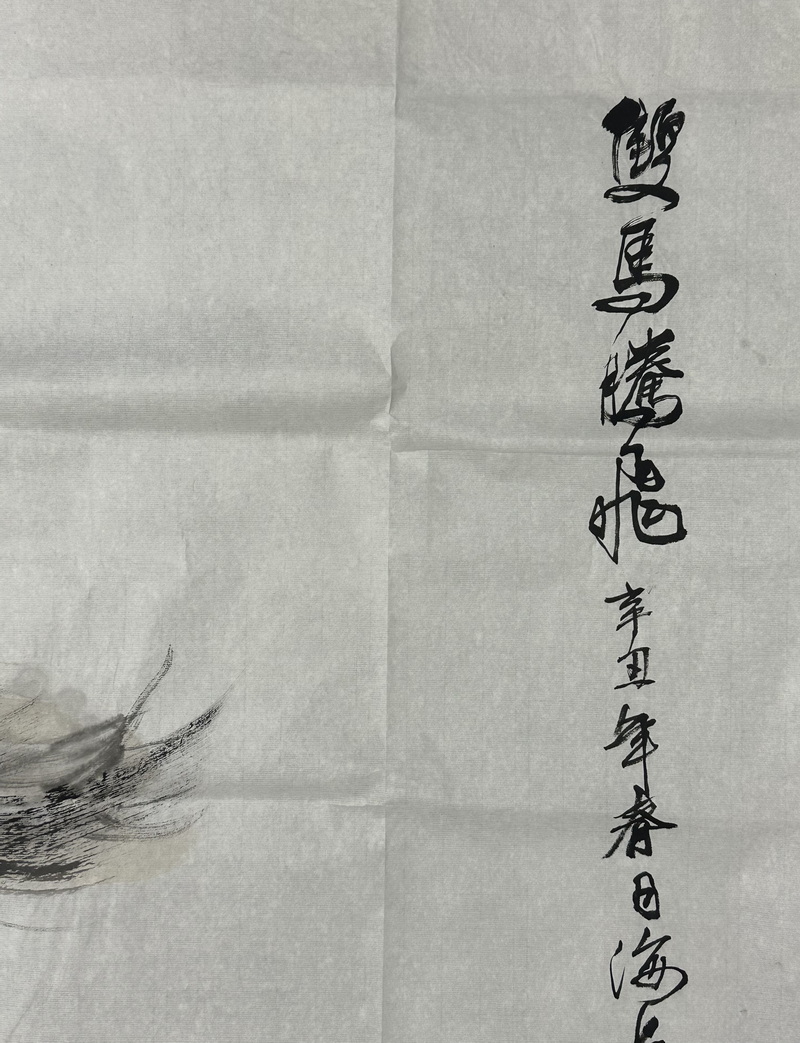 雙馬騰飛辛丑年春日海